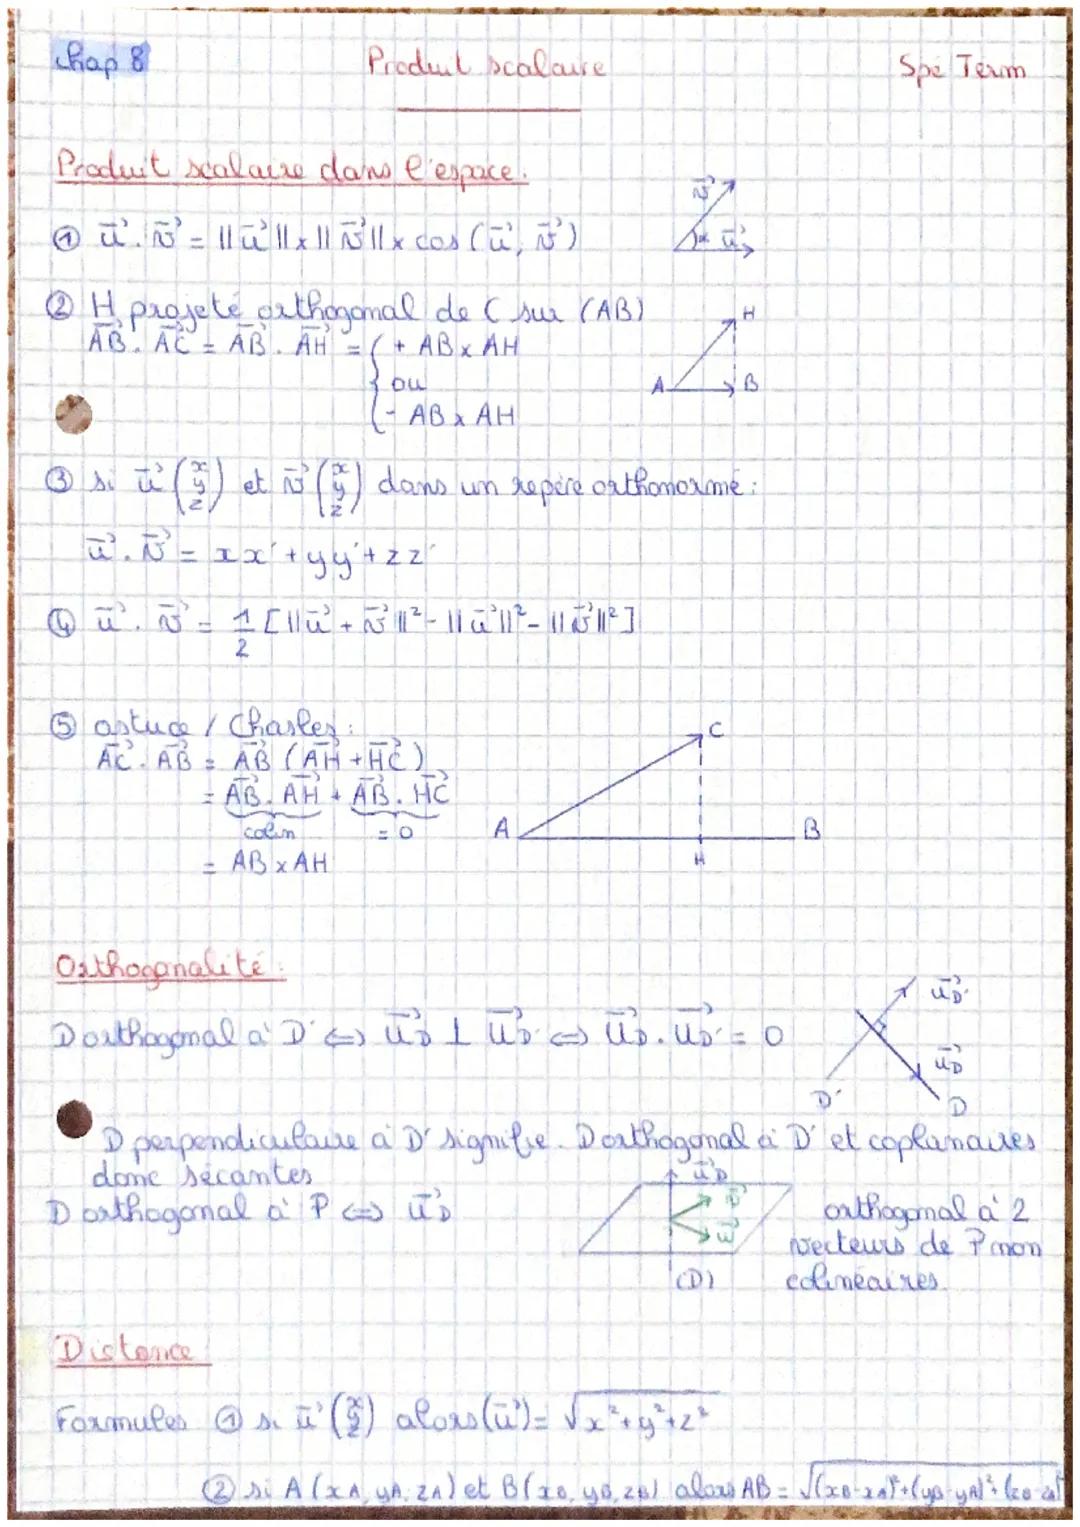 Chap 8 Produit scalaire Spé Term
Produit scalaire dans l'espace.
① u⃗ . v⃗ = ||u⃗|| x ||v⃗|| x cos (u⃗, v⃗)
v⃗
α u⃗
② H projeté orthogonal de C sur (AB)
AB⃗ . AC⃗ = AB⃗ . AH⃗ = { + AB x AH
ou
- AB x AH
H
A B
③ si u⃗ (x y z) et v⃗ (x y z) dans un repère orthonormé :
u⃗ . v⃗ = xx' + yy' + zz'
④ u⃗ . v⃗ = 1/2 [||u⃗ + v⃗||² - ||u⃗||² - ||v⃗||²]
⑤ astuce / Chasles :
AC⃗ . AB⃗ = AB⃗ (AH⃗ + HC⃗)
= AB⃗ . AH⃗ + AB⃗ . HC⃗
colin = 0
= AB x AH
C
A B
H
Orthogonalité :
D orthogonal à D' ⇔ u⃗D ⊥ u⃗D' ⇔ u⃗D . u⃗D' = 0
u⃗D'
u⃗D
D' D
D perpendiculaire à D' signifie. D orthogonal à D' et coplanaires
donc sécantes
D orthogonal à P ⇔ u⃗D orthogonal à 2
vecteurs de P non
colinéaires.
u⃗D
v⃗
w⃗
(D)
Distance
Formules ① si u⃗ (x y z) alors (u⃗) = √x² + y² + z²
② si A (xA, yA, zA) et B (xB, yB, zB) alors AB = √(xB-xA)² + (yB-yA)² + (zB-zA)²